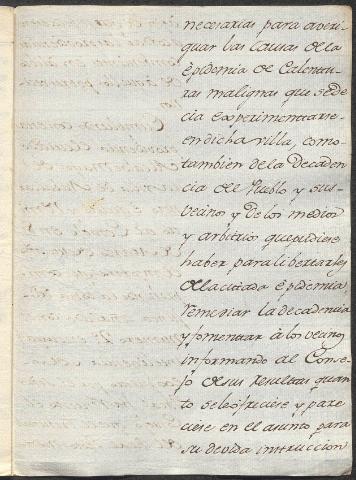 necesarias para averi
guar las causas de la
epidemia de Calentu
ras malignas que se de
cia experimentarse
en dicha villa, como
tambien de la Decaden
cia del Pueblo y sus
vecinos y de los medios
y arbitrios que pudiese
haber para libertarles
de la citada epidemia,
remediar la decadencia
y fomentar à los vecinos
informando al Conse
jo de sus resultas quan
to se le ofreciese y pare
ciese en el asunto para
su devida instruccion